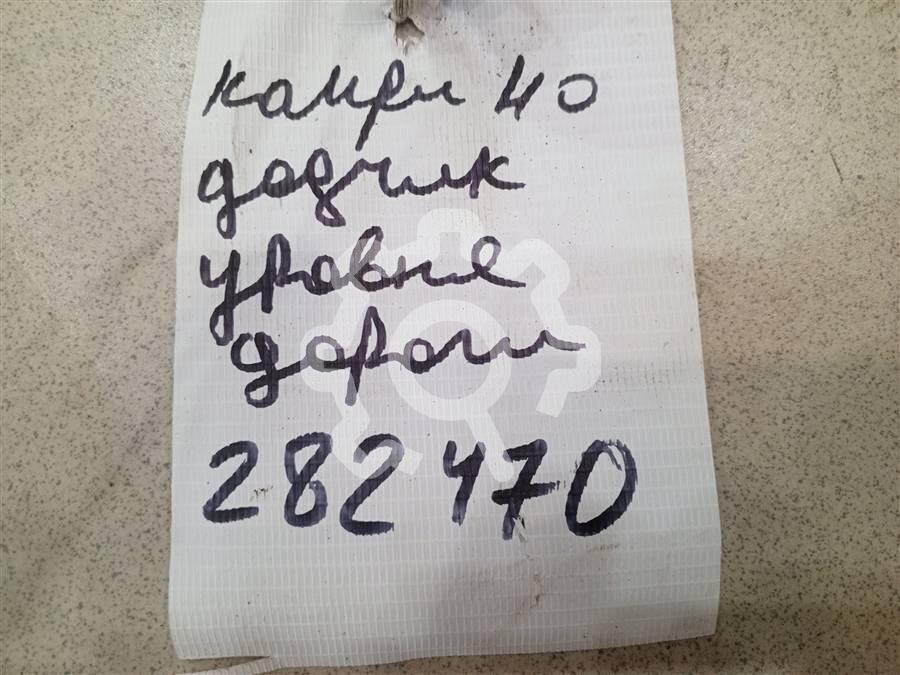 камри 40
дадчик
уровня
дороги
282470